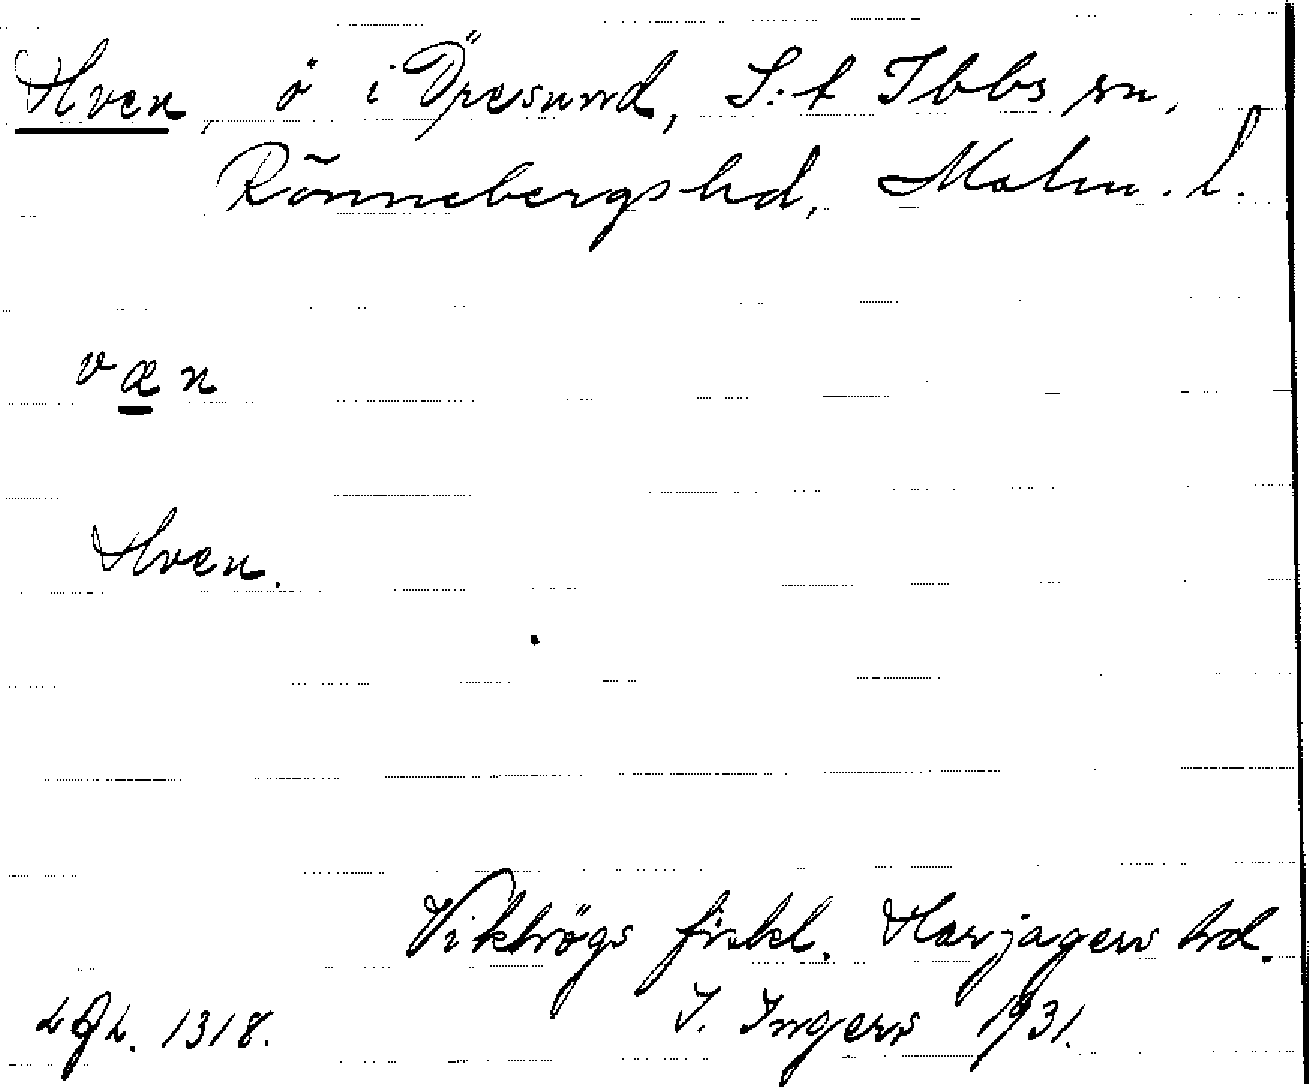 Hven, ö i Öresund, S:t Ibbs sn,
Rönnebergs hd, Malm. l.
væn
Hven.
Vikhögs fiskel. Harjagers hd.
I. Ingers 1931.
1318.